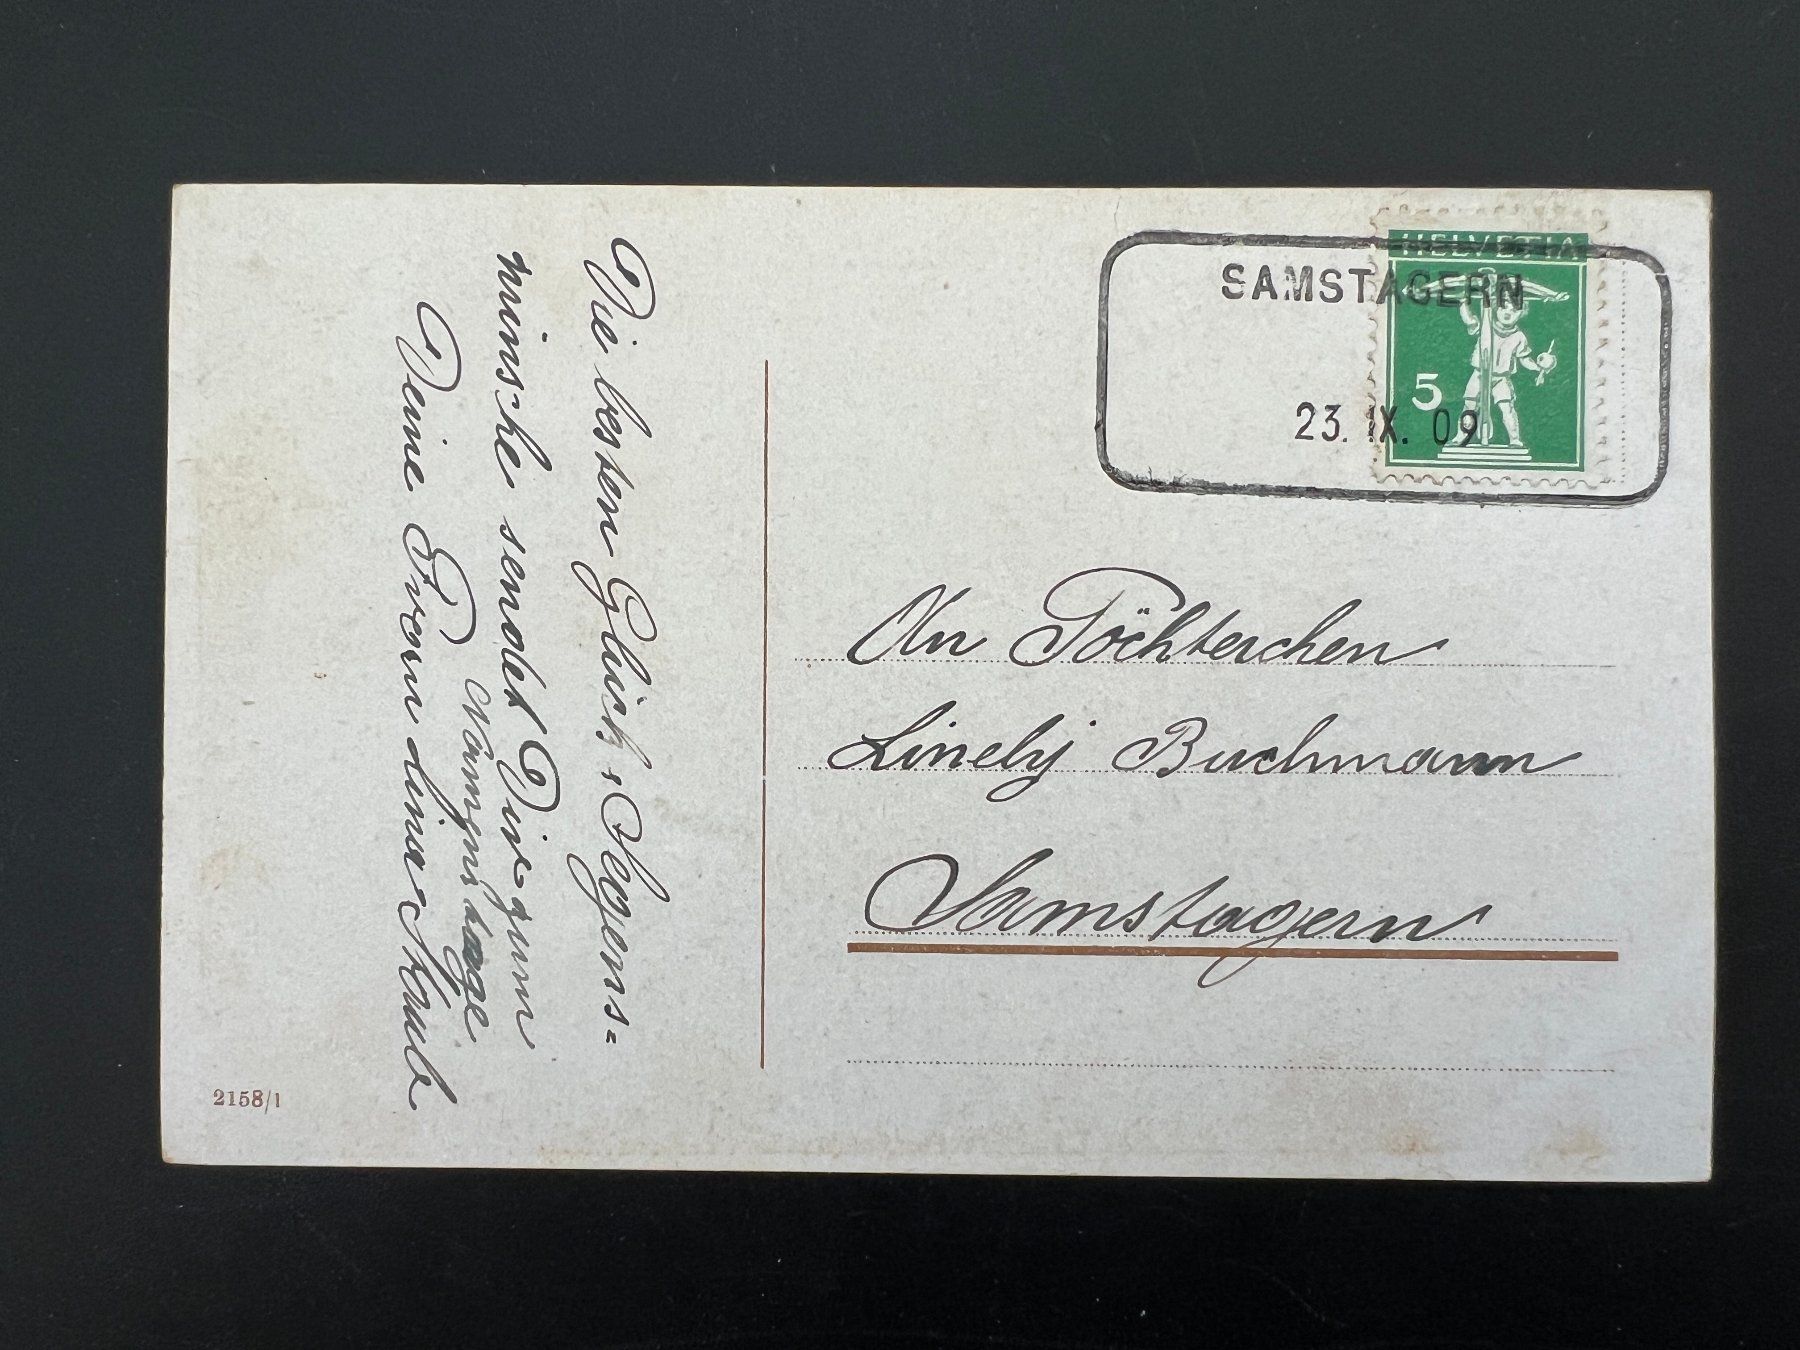 Die besten Glück-, Segens=
wünsche sendet Dir zum
Namenstage
Deine Freundin Staub
2158/1
HELVETIA
SAMSTAGERN
5
23. IX. 09
An Töchterchen
Linely Buchmann
Samstagern